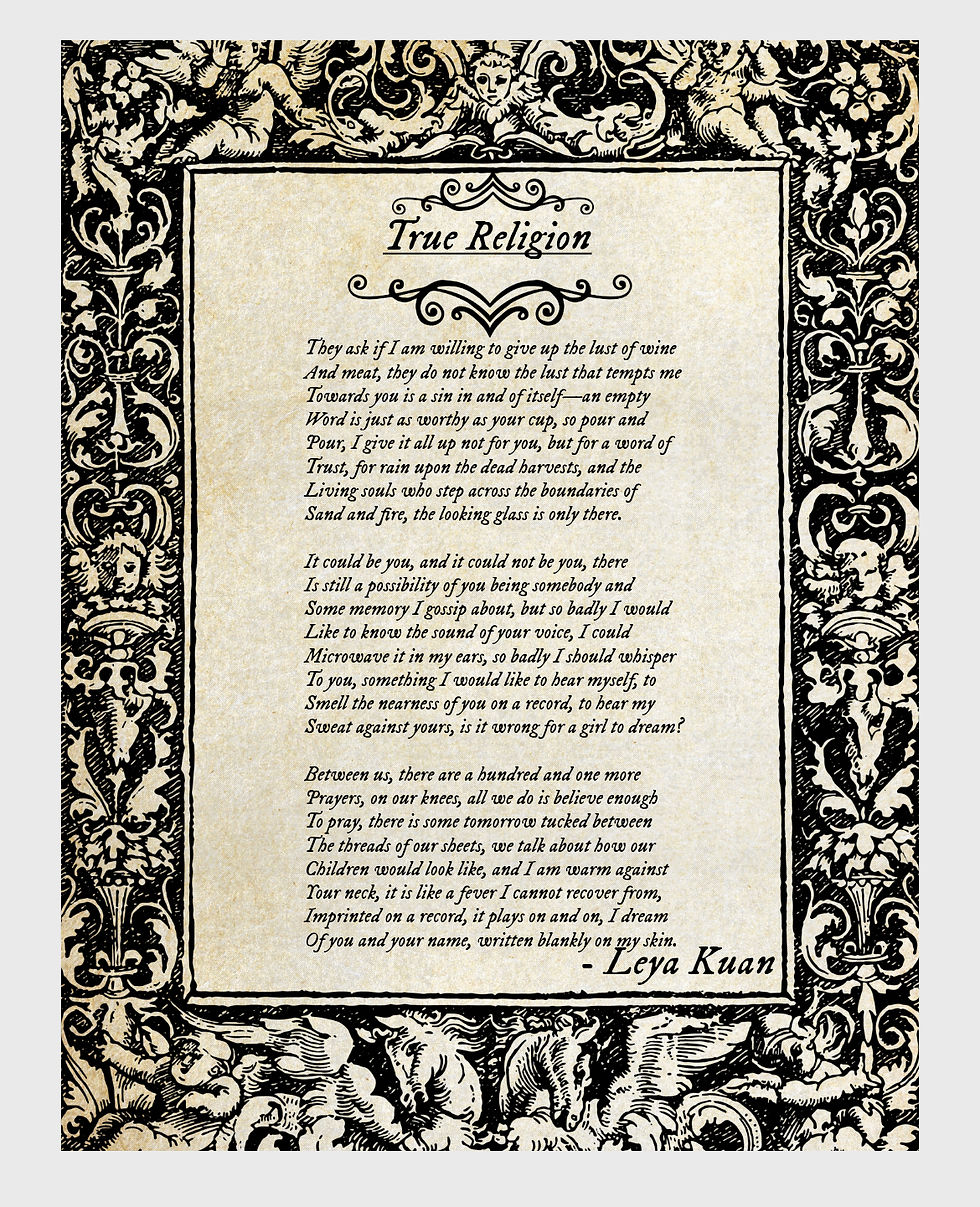 True Religion
They ask if I am willing to give up the lust of wine
And meat, they do not know the lust that tempts me
Towards you is a sin in and of itself—an empty
Word is just as worthy as your cup, so pour and
Pour, I give it all up not for you, but for a word of
Trust, for rain upon the dead harvests, and the
Living souls who step across the boundaries of
Sand and fire, the looking glass is only there.
It could be you, and it could not be you, there
Is still a possibility of you being somebody and
Some memory I gossip about, but so badly I would
Like to know the sound of your voice, I could
Microwave it in my ears, so badly I should whisper
To you, something I would like to hear myself, to
Smell the nearness of you on a record, to hear my
Sweat against yours, is it wrong for a girl to dream?
Between us, there are a hundred and one more
Prayers, on our knees, all we do is believe enough
To pray, there is some tomorrow tucked between
The threads of our sheets, we talk about how our
Children would look like, and I am warm against
Your neck, it is like a fever I cannot recover from,
Imprinted on a record, it plays on and on, I dream
Of you and your name, written blankly on my skin.
- Leya Kuan